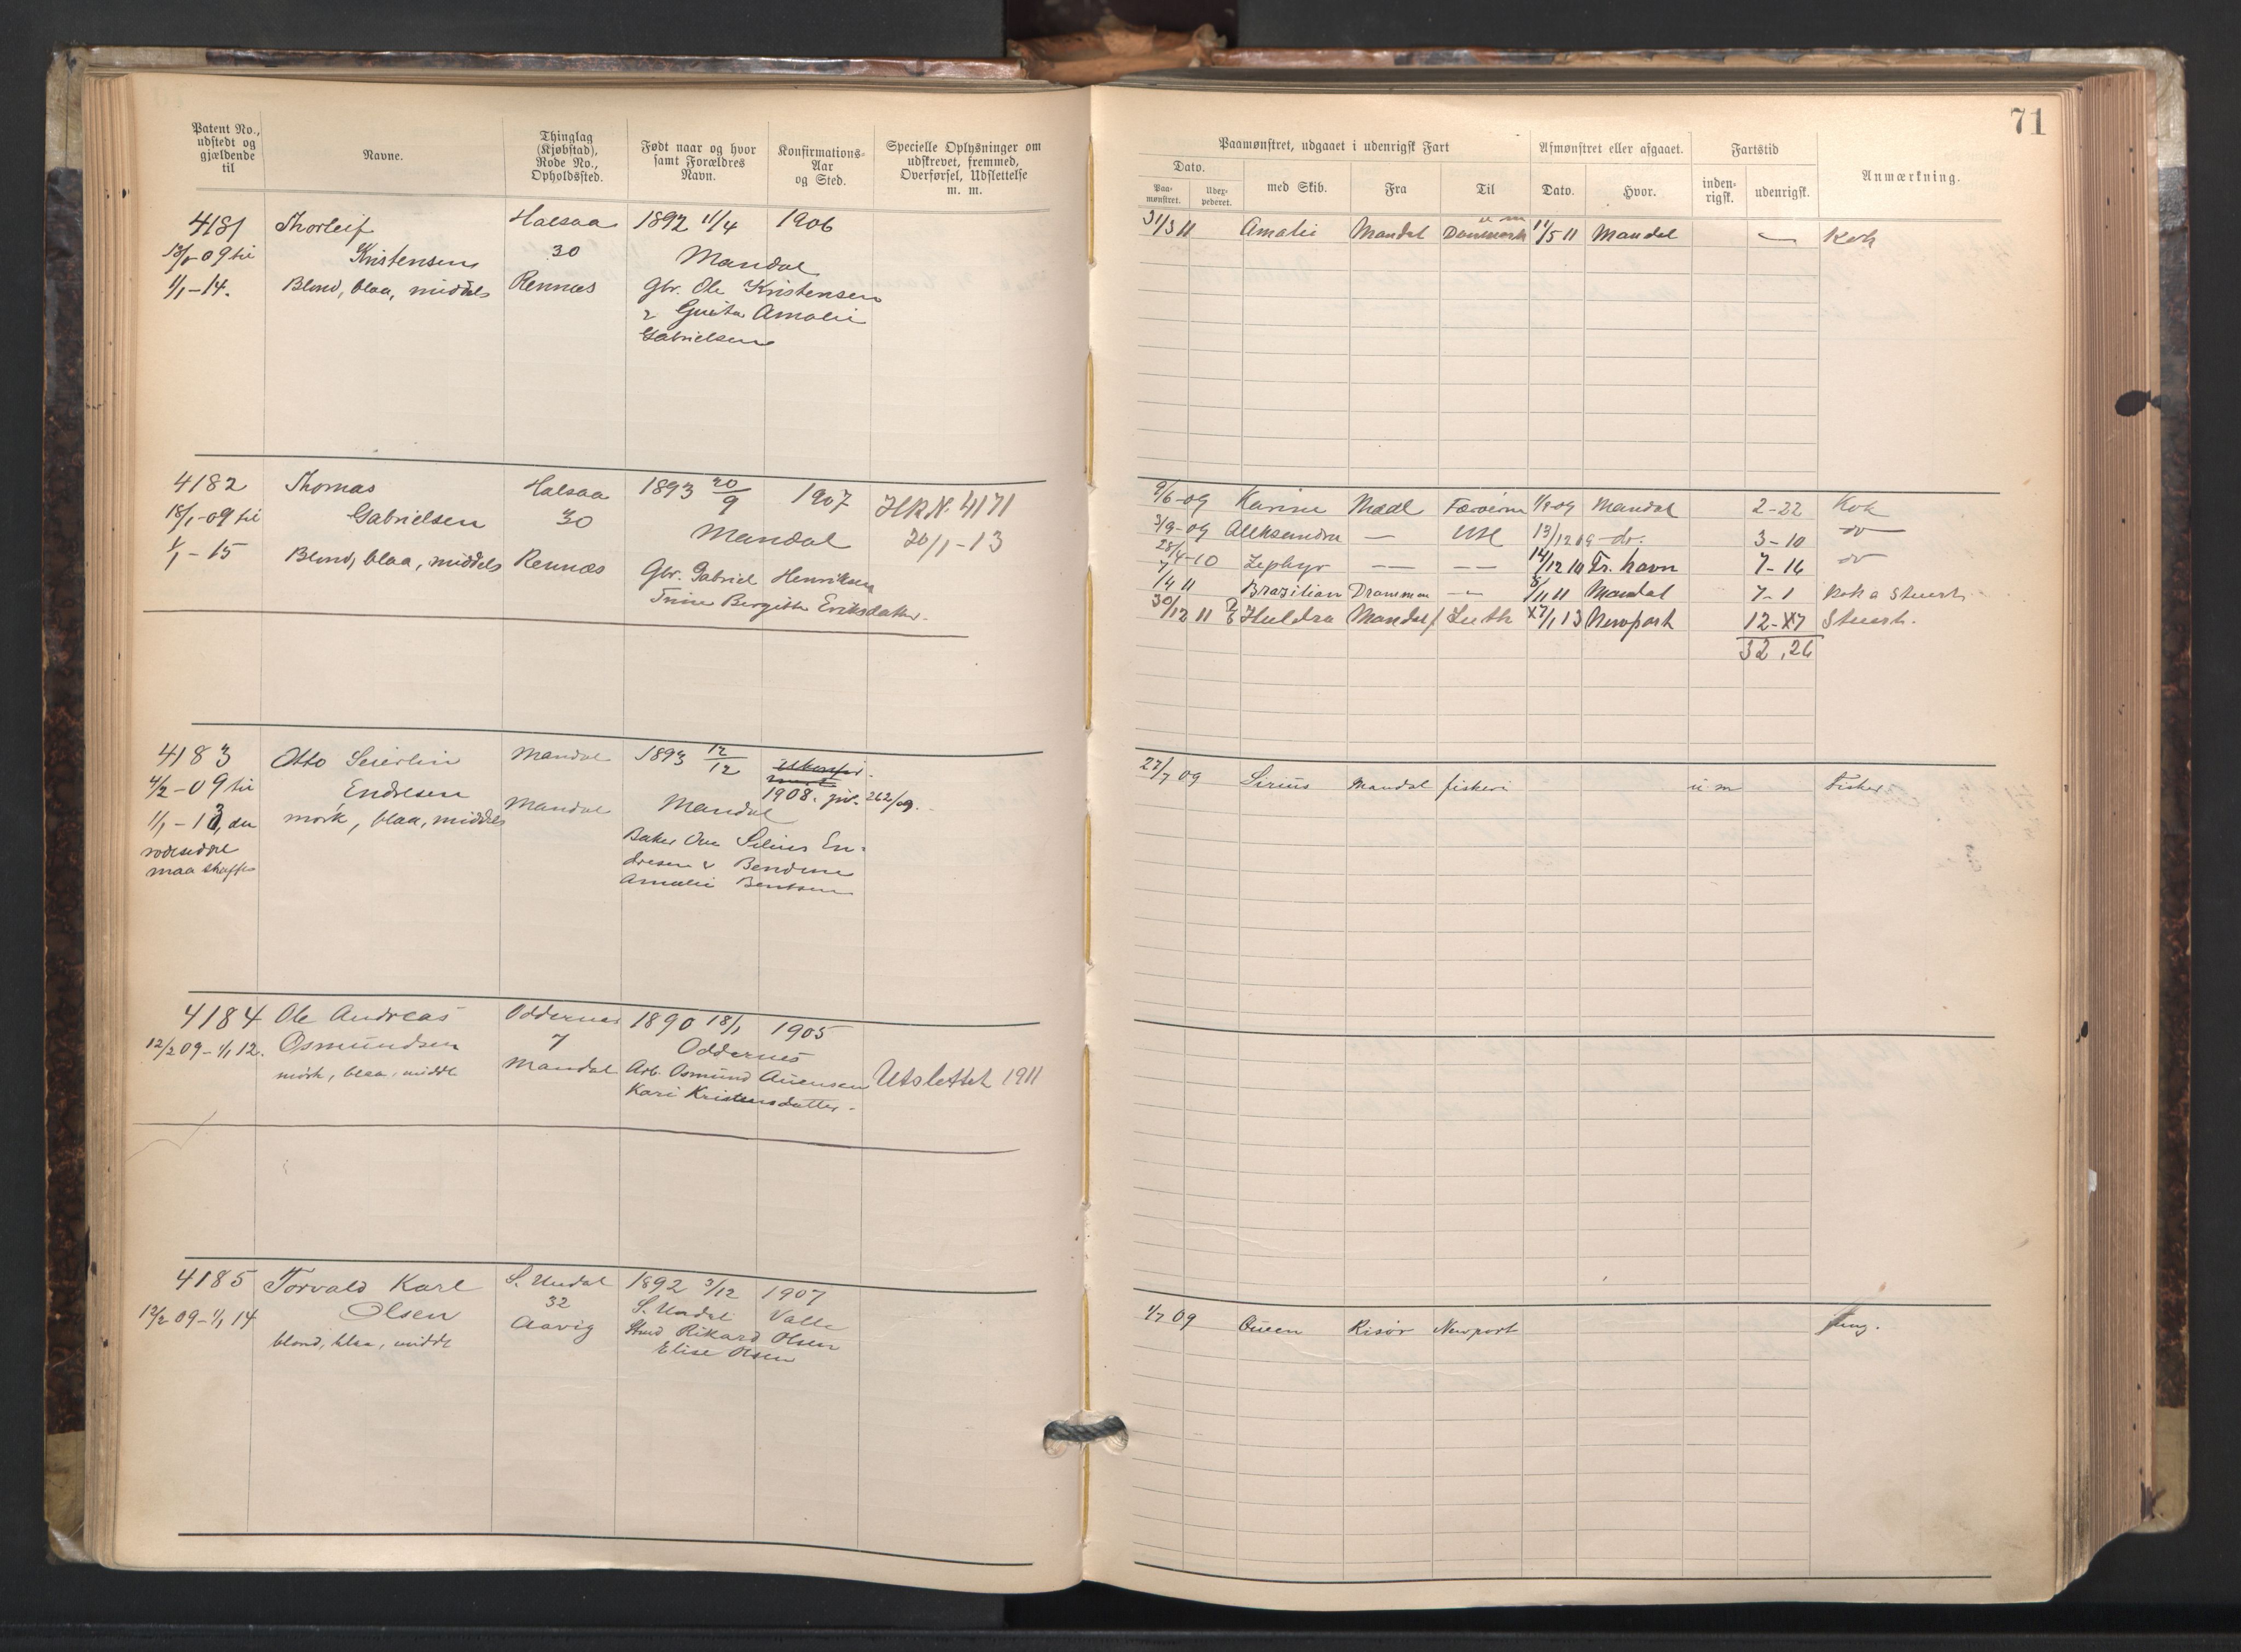 71
Patent No., udstedt og gjældende til
Navne.
Thinglag (Kjøbstad), Rode No., Opholdssted.
Født naar og hvor samt Forældres Navn.
Konfirmations-Aar og Sted.
Specielle Oplysninger om udskrevet, fremmed, Overførsel, Udslettelse m. m.
Paamønstret, udgaaet i udenrigsk Fart
Afmønstret eller afgaaet.
Fartstid
Anmærkning.
Dato.
Paa-mønstret.
med Skib.
Fra
Til
Dato.
Hvor.
inden-rigsk.
udenrigsk.
4181 Thorleif Halsaa 1892 11/4 1906
Kristensen 30 Mandal
1/1-14. Blond, blaa, middels Rennæs Gbr. Ole Kristensen
Amalie
Gabrielsen
31/3 11 Amalie Mandal Danmark 14/5 11 Mandal — Kok
4182 Thomas Halsaa 1893 20/9 1907 4171
18/1-09 til Gabrielsen 30 Mandal 20/1-13
1/1-15 Blond, blaa, middels Rennæs Gbr. Gabriel Henriksen
Trine Bergitte Eriksdatter.
9/6-09 Karine Mdal Færøerne Mandal 2-22 Kok
3/9-09 Alleksandra — 13/12 09 - do. 3-10 do
28/4-10 Zephyr — — 14/12 10 Fr. havn 7-16 do
7/4 11 Brazilian Drammen — 8/11 11 Mandal 7-1 Kok a Stuert
30/12 11 Huldra Mandal Leith 27/1 13 Newport 12-27 Stuert.
32,26
4183 Otto Seierlin Mandal 1893 12/12
4/2-09 til Endresen Mandal Mandal 1908. 262/09.
mørk, blaa, middels
Baker Ove Selius En-
maa skaffes dresen & Bendine
Amalie Bentsen
27/7 09 Sirius Mandal fiskeri u m Fisker
4184 Ole Andreas Oddernes 1890 18/1 1905
12/2 09-1/1 12. Osmundsen 7 Oddernes
mørk, blaa, middl Mandal Arb. Osmund Auensen Utslettet 1911
Kari Kristensdatter.
4185 Torvald Karl S. Undal 1892 3/12 1907
12/2 09-1/1 14 Olsen 32 S. Undal Valle
blond, blaa, middl Aavig Rikard Olsen
Elise Olsen
1/7 09 Queen Risør Newport Jung.